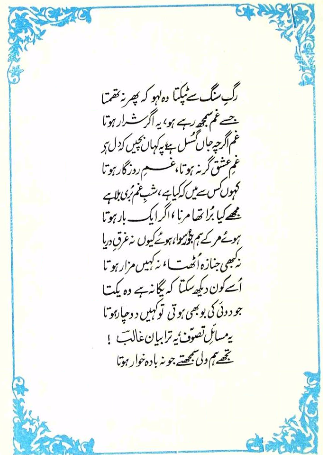 رگِ سنگ سے ٹپکتا وہ لہو کہ پھر نہ تھمتا
جسے غم سمجھ رہے ہو، یہ اگر شرار ہوتا
غم اگرچہ جاں گسل ہے پہ کہاں بچیں کہ دل ہے
غمِ عشق گر نہ ہوتا، غمِ روزگار ہوتا
کہوں کس سے میں کہ کیا ہے، شبِ غم بُری بلا ہے
مجھے کیا بُرا تھا مرنا، اگر ایک بار ہوتا
ہوئے مر کے ہم جو رسوا، ہوئے کیوں نہ غرقِ دریا
نہ کبھی جنازہ اُٹھتا، نہ کہیں مزار ہوتا
اُسے کون دیکھ سکتا کہ یگانہ ہے وہ یکتا
جو دوئی کی بو بھی ہوتی تو کہیں دوچار ہوتا
یہ مسائلِ تصوّف، یہ ترا بیان غالبؔ !
تجھے ہم ولی سمجھتے جو نہ بادہ خوار ہوتا